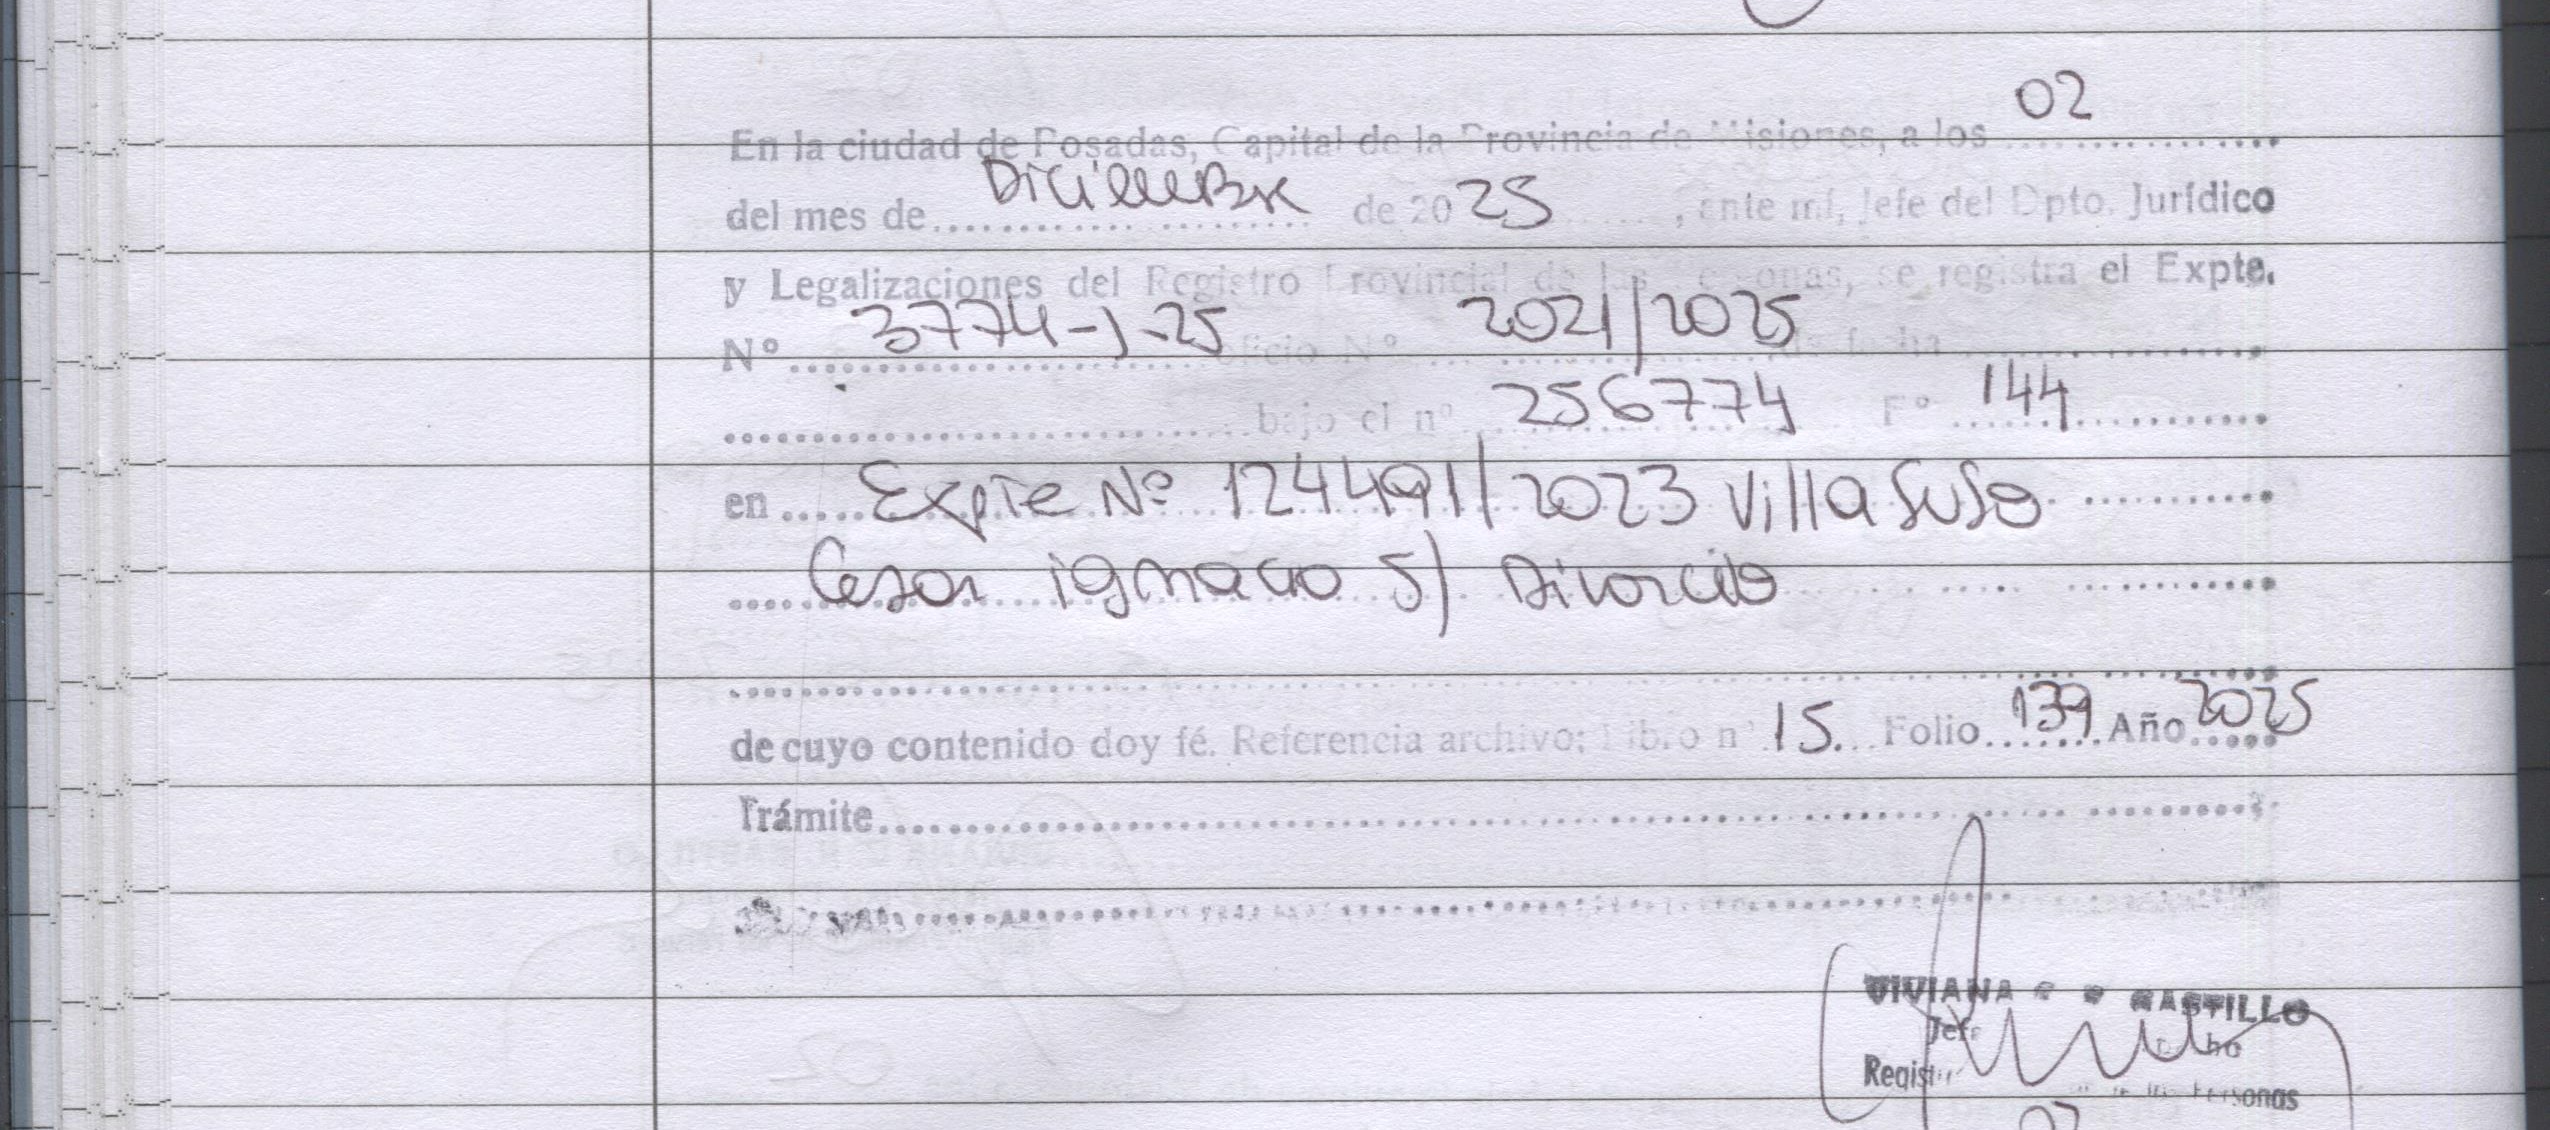 En la ciudad de Posadas, Capital de la Provincia de Misiones, a los 02
del mes de Diciembre de 2025, ante mí, Jefe del Dpto. Jurídico
y Legalizaciones del Registro Provincial de las Personas, se registra el Expte.
Nº 3774-J-25 oficio Nº 2021/2025 de fecha
bajo el nº 256774 Fº 144
en Expte Nº 124491/2023 Villasuso
Cesar ignacio S/ Divorcio
de cuyo contenido doy fé. Referencia archivo: Libro nº 15. Folio 139 Año 2025
Trámite
VIVIANA CASTILLO
Jefe
Regist de las Personas